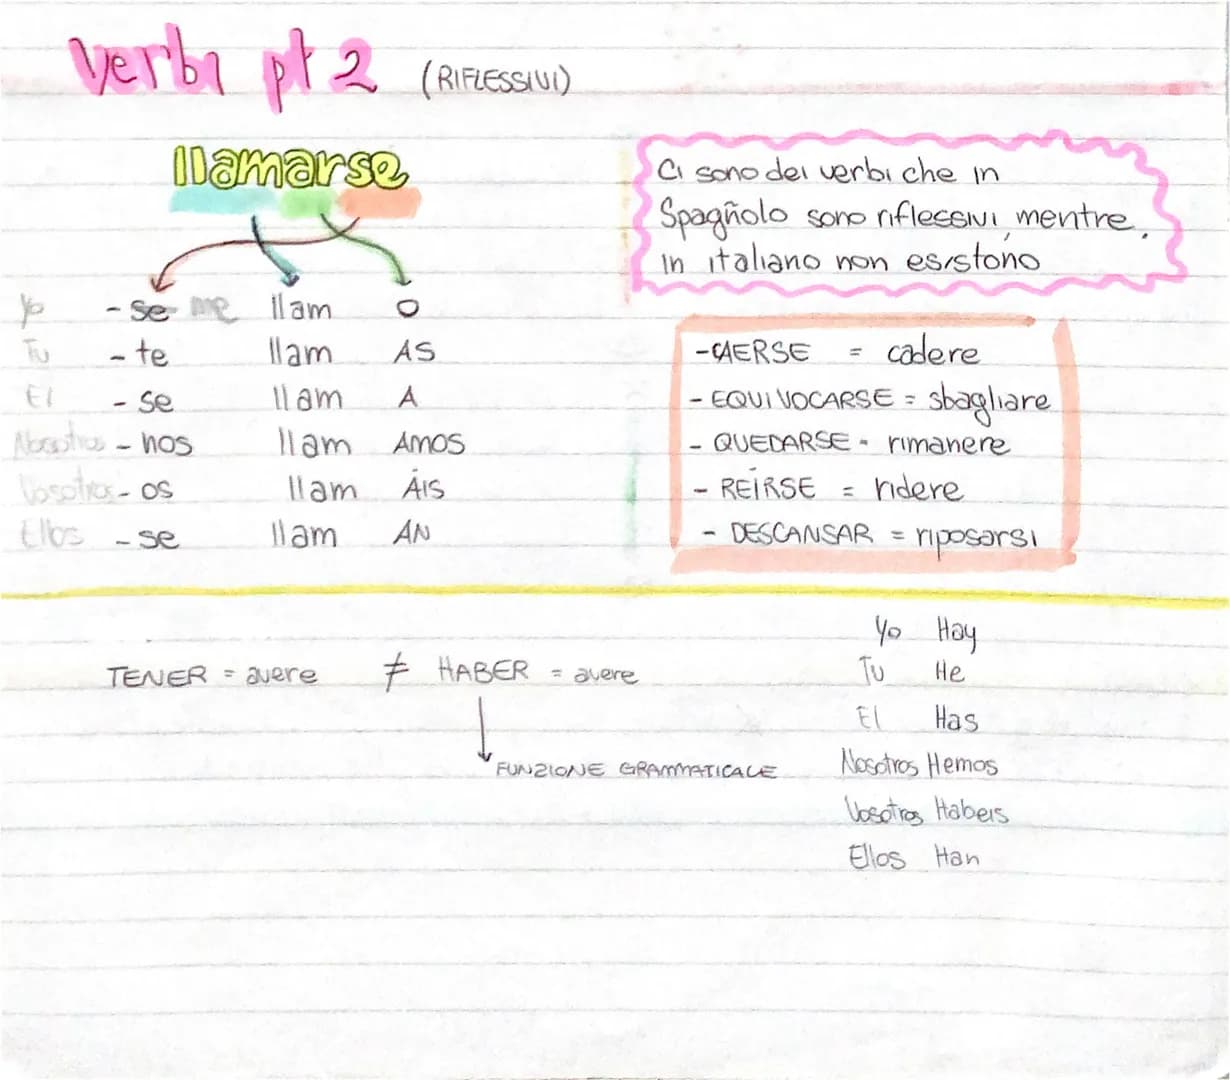 Verbi pt 2 (RIFLESSIVI)
llamarse
Yo - se me llam O
Tu - te llam AS
El - se llam A
Nosotros - nos llam AMOS
Vosotros - os llam ÁIS
Ellos - se llam AN
Ci sono dei verbi che in
Spagñolo sono riflessivi, mentre,
in italiano non esistono
- CAERSE = cadere
- EQUIVOCARSE = sbagliare
- QUEDARSE - rimanere
- REÍRSE = ridere
- DESCANSAR = riposarsi
TENER = avere ≠ HABER = avere
FUNZIONE GRAMMATICALE
Yo Hay
Tu He
El Has
Nosotros Hemos
Vosotros Habeis
Ellos Han